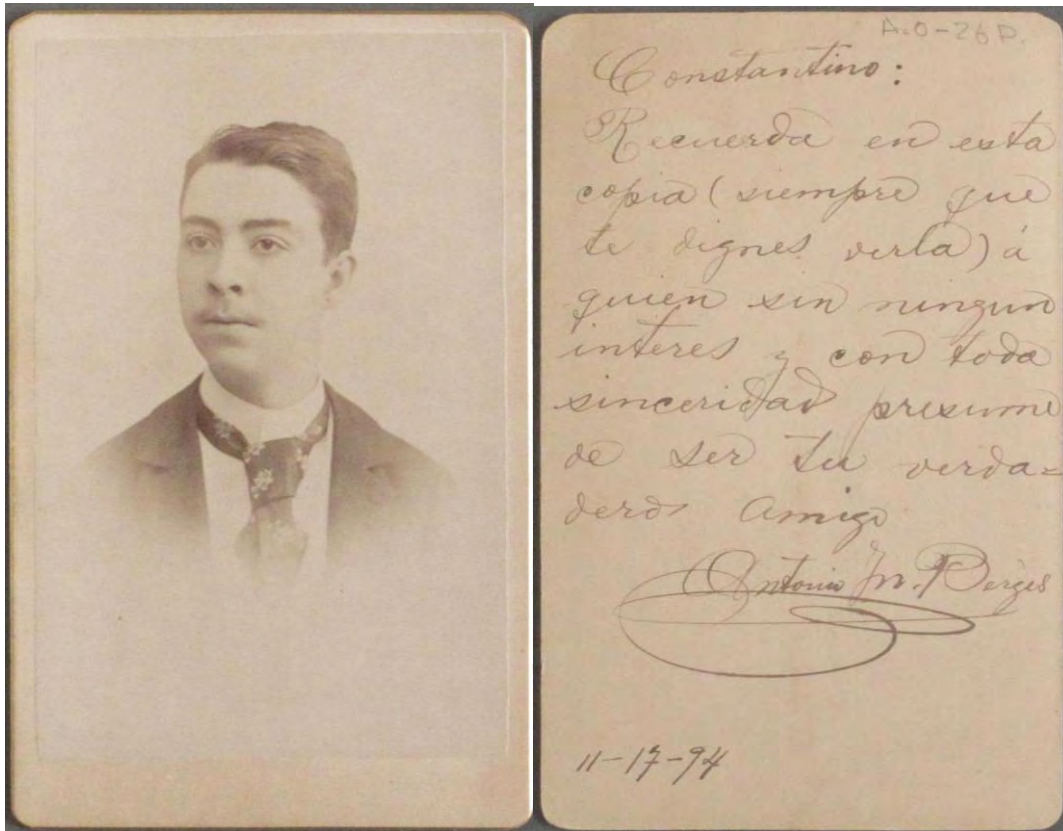 A.O-26P.
Constantino:
Recuerda en esta
copia (siempre que
te dignes verla) á
quien sin ningun
interes y con toda
sinceridad presume
de ser tu verda=
dero amigo
Antonio M. Berges
11-17-94